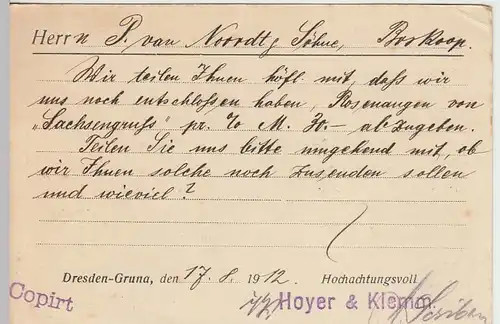 Herrn P. van Noordt & Söhne, Boskoop.
Wir teilen Ihnen höfl. mit, dass wir
uns noch entschlossen haben, Rosenaugen von
„Sachsengruss" pr. %0 M. 30.— abzugeben.
Teilen Sie uns bitte umgehend mit, ob
wir Ihnen solche noch zusenden sollen
und wieviel?
Dresden-Gruna, den 17. 8. 1912. Hochachtungsvoll
Copirt
Hoyer & Klemm.